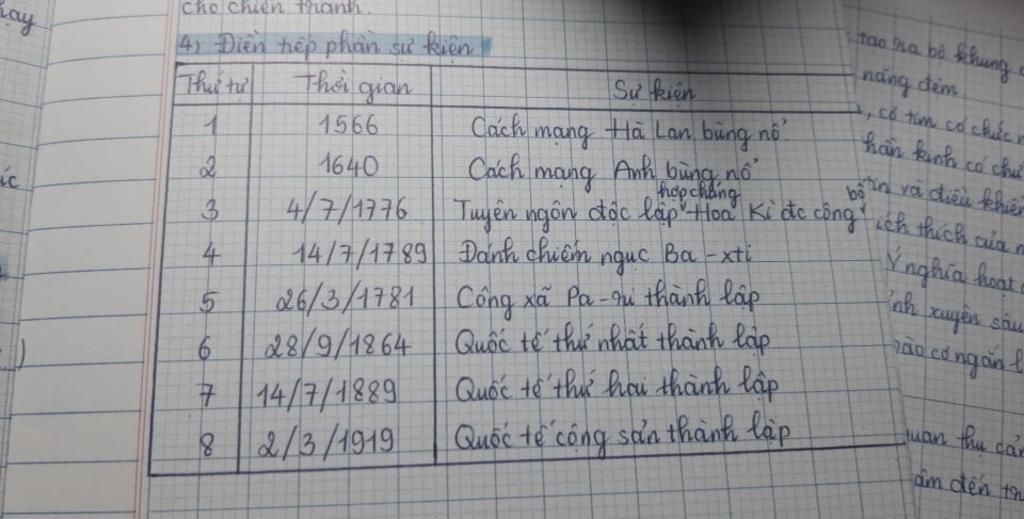 hay
cho chiến tranh.
4) Điền tiếp phần sự kiện
Thứ tự Thời gian Sự kiện
1 1566 Cách mạng Hà Lan bùng nổ
2 1640 Cách mạng Anh bùng nổ
hợp chủng bố
3 4/7/1776 Tuyên ngôn độc lập Hoa Kì đc công
4 14/7/1789 Đánh chiếm ngục Ba-xti
5 26/3/1781 Công xã Pa-ri thành lập
6 28/9/1864 Quốc tế thứ nhất thành lập
7 14/7/1889 Quốc tế thứ hai thành lập
8 2/3/1919 Quốc tế cộng sản thành lập
tạo ra bộ khung
năng đệm
, có tim có chức
tin và điều khiển
ích thích của
Ý nghĩa hoạt
xuyên sâu
ảm đến